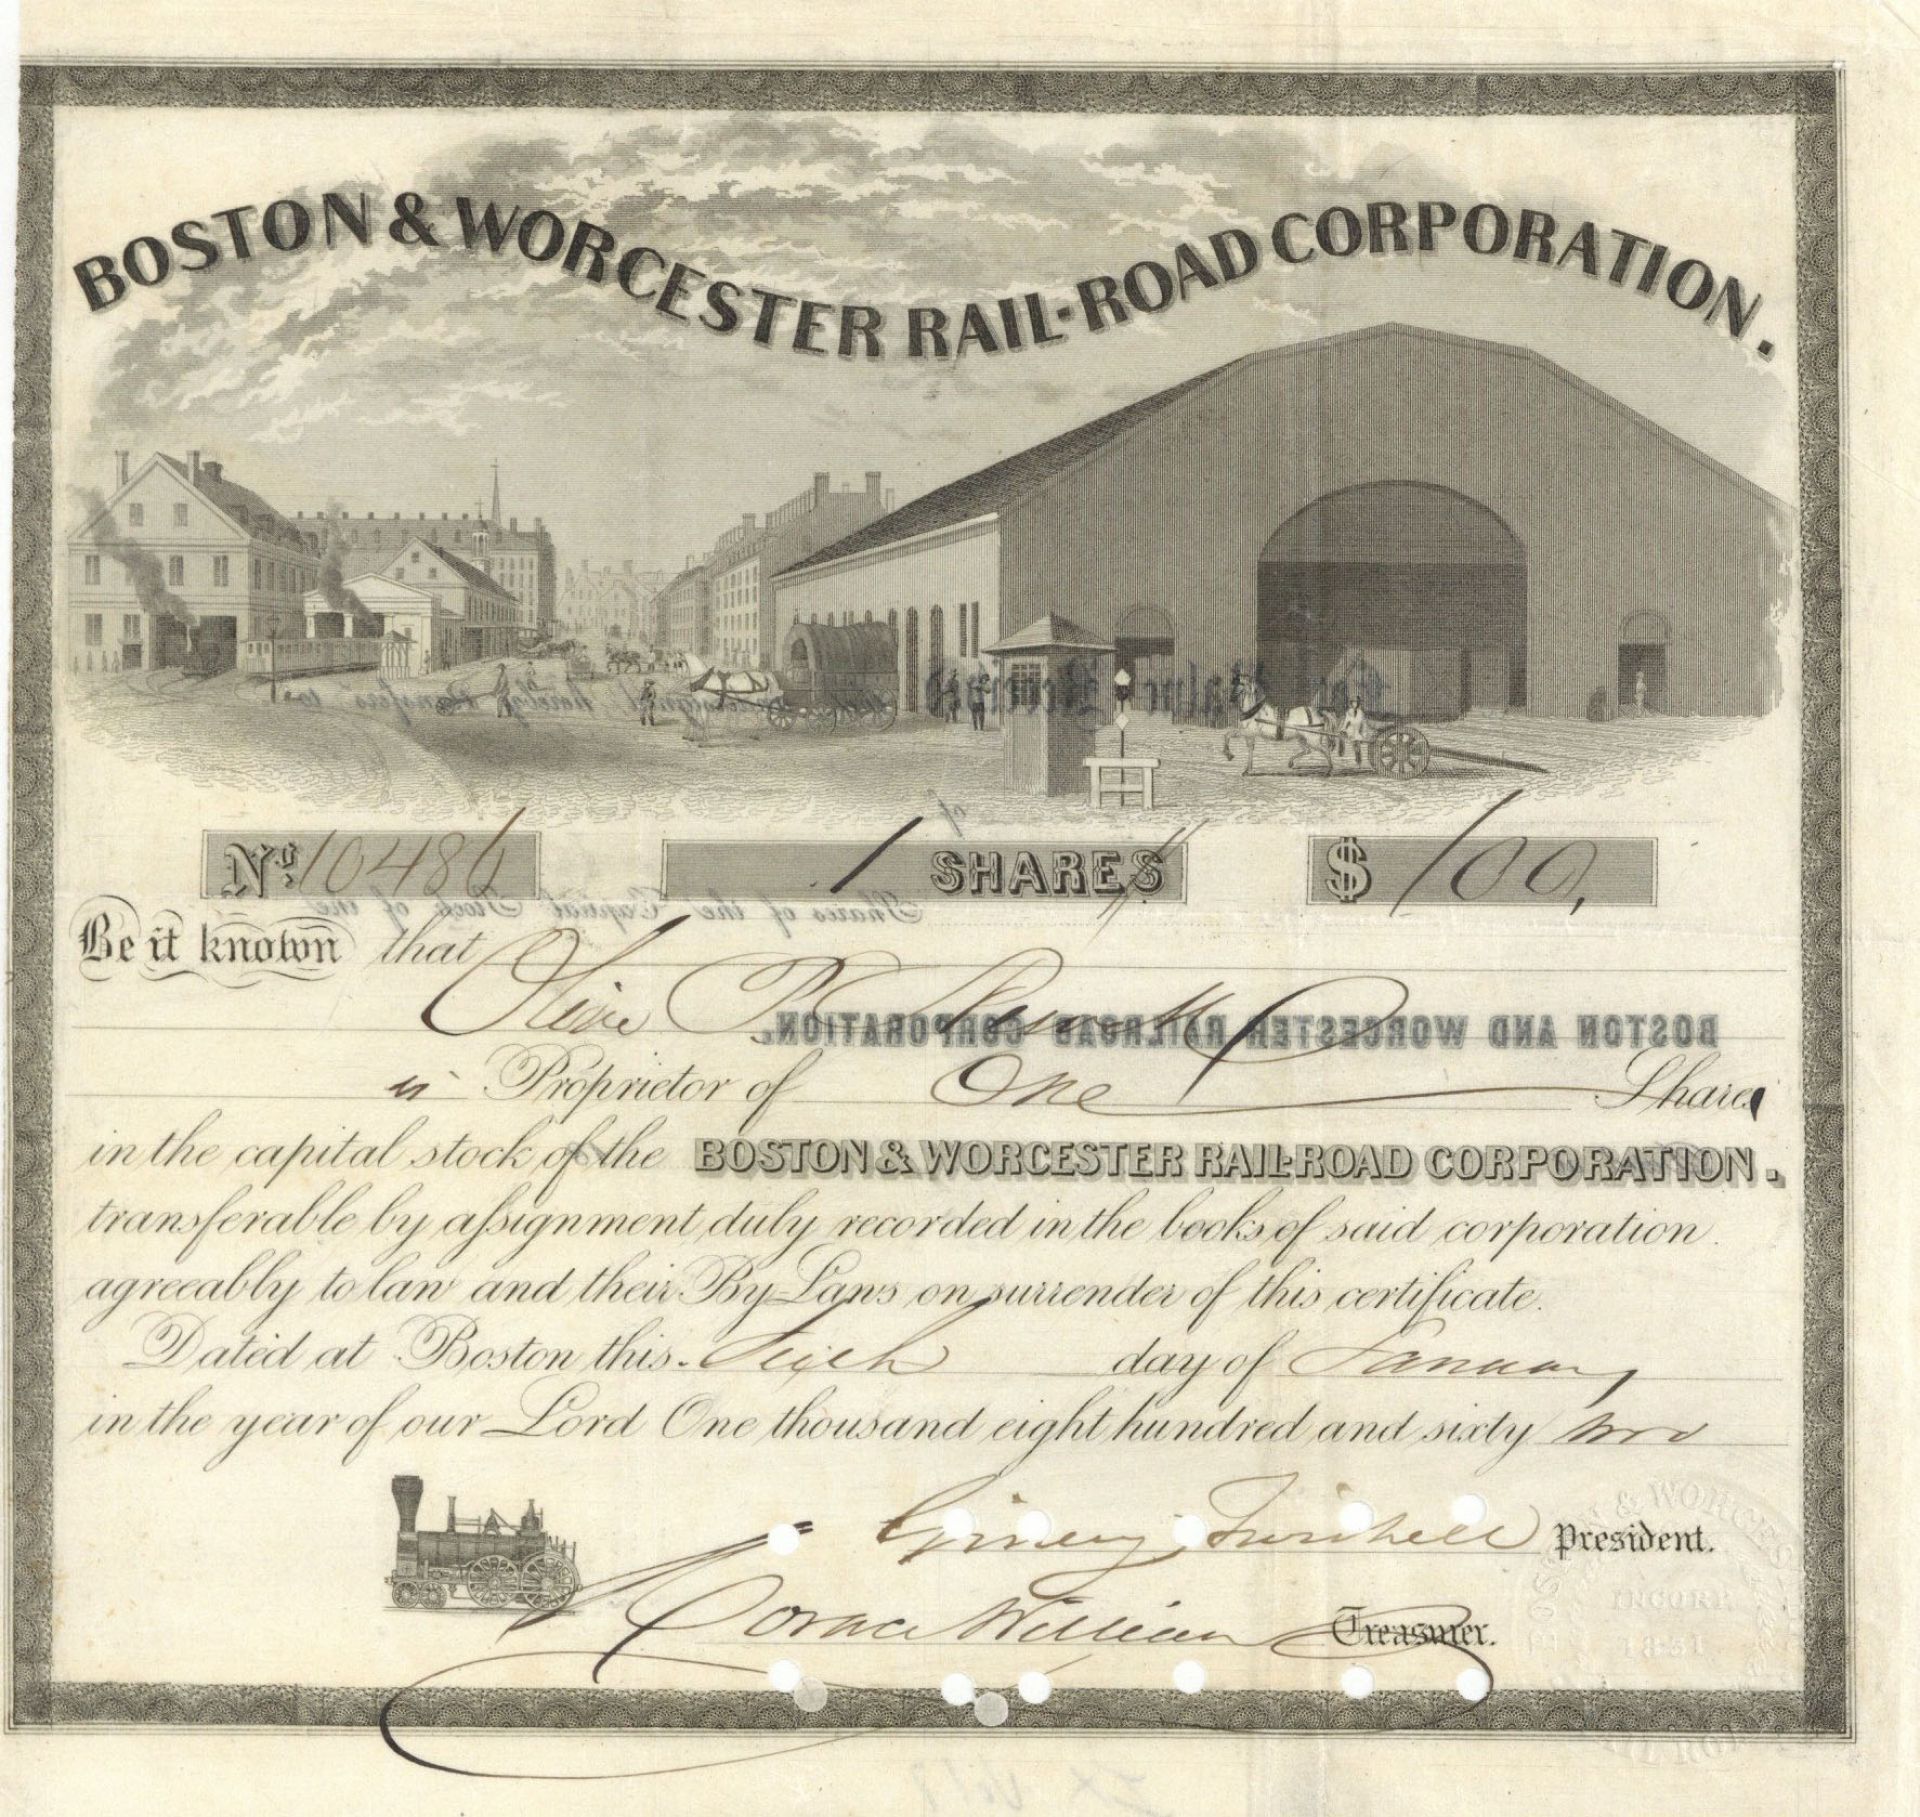 BOSTON & WORCESTER RAIL-ROAD CORPORATION.
For Value Received
undersigned hereby transfers to
of
No. 10486 1 SHARES $ 100,
Shares of the Capital Stock of the
Be it known that
P.
BOSTON AND WORCESTER RAILROAD CORPORATION.
is Proprietor of One Share
in the capital stock of the BOSTON & WORCESTER RAIL-ROAD CORPORATION.
transferable by assignment duly recorded in the books of said corporation.
agreeably to law and their By-Laws on surrender of this certificate.
Dated at Boston this day of January
in the year of our Lord One thousand eight hundred and sixty two
Ginery Twichell President.
Horace Williams Treasurer.
BOSTON & WORCESTER
INCORP.